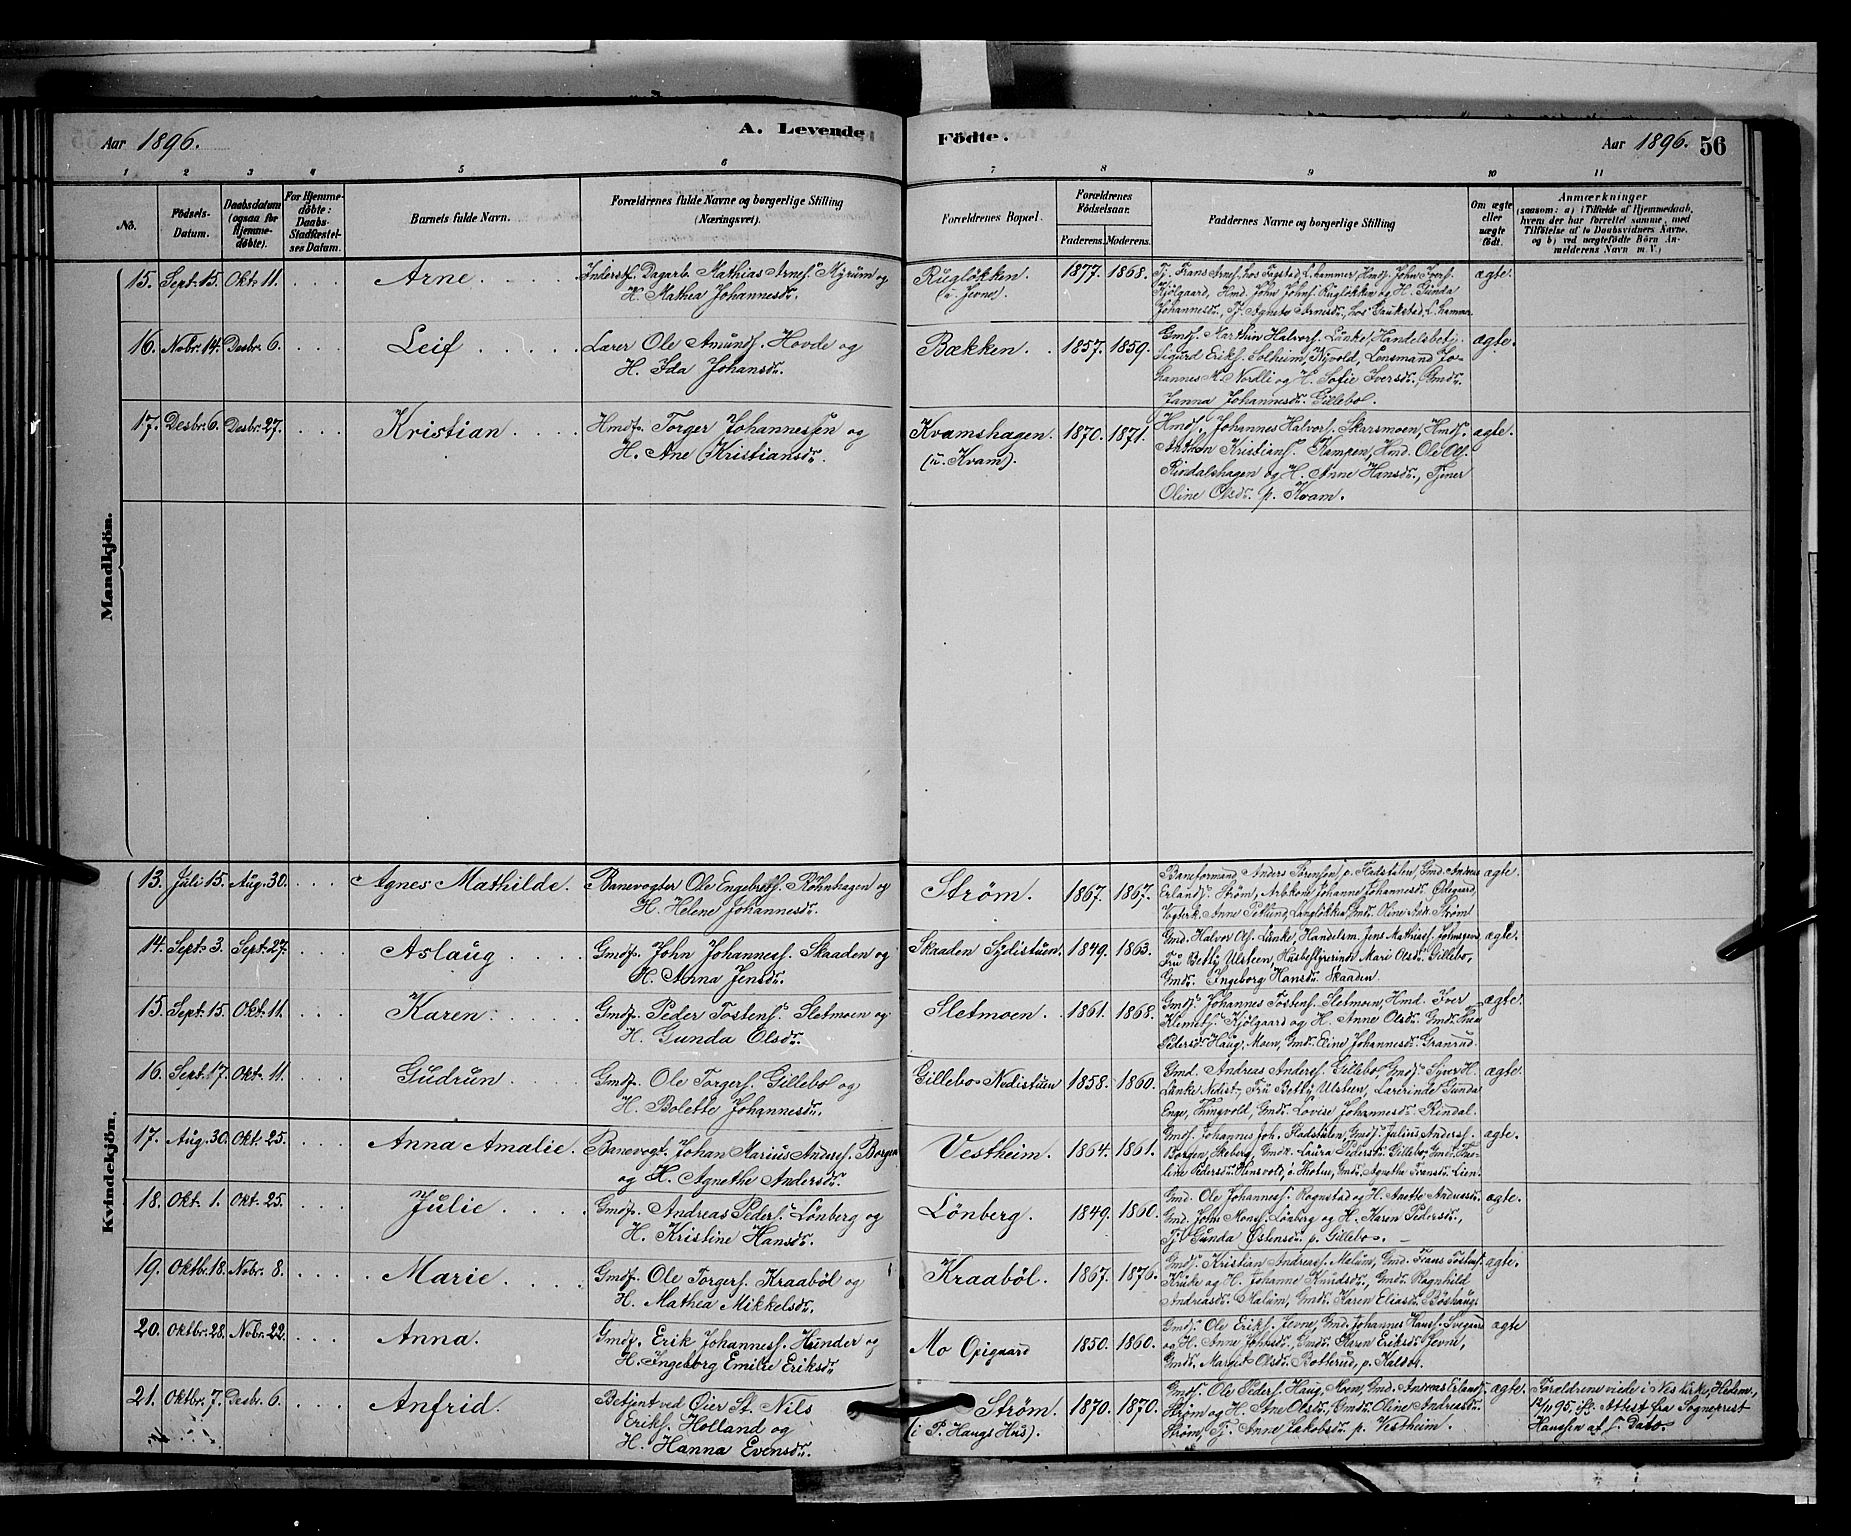 Aar 1896.
A. Levende
Födte.
Aar 1896. 56
1 2 3 4 5 6 7 8 9 10 11
No.
Födsels-Datum.
Daabsdatum (ogsaa for Hjemme-døbte).
For Hjemme-døbte: Daabs-Stadfæstel-ses Datum.
Barnets fulde Navn.
Forældrenes fulde Navne og borgerlige Stilling (Næringsvei).
Forældrenes Bopæl.
Forældrenes Fødselsaar.
Faderens. Moderens.
Faddernes Navne og borgerlige Stilling
Om ægte eller uægte født.
Anmærkninger
(saasom: a) i Tilfælde af Hjemmedaab,
hvem der har forrettet samme, med
Tilföielse af to Daabsvidners Navne.
og b) ved uægtefödte Börn An-
melderens Navn m. V.)
Mandkjön.
15. Sept. 15. Okt. 11. Arne Inderstf. Dagarb. Mathias Arnes. Myrum og
H. Mathea Johannesdr.
Rugløkken. (u. Jevne). 1877. 1868.
Tj. Frans Arnes. hos Figstad, L.hammer, Hmd. John Ivers.
Kjölgaard, Hmd. John Johns. Rugløkken og H. Gunda
Johannesdr., Tj. Agnethe Arnesdr., hos Gaukstad, L.hammer
ægte.
16. Nobr. 14. Desbr. 6. Leif Lærer Ole Amunds. Hovde og
H. Ida Johansdr.
Bækken. 1857. 1859.
Gmdf. Marthin Halvors. Lunke, Handelsbetj.
Sigurd Eriks. Solheim, Nyvold, Lensmand Jo-
hannes M. Nordli og H. Sofie Iversdr., Gmdr.
Janna Johannesdr. Gillebo.
ægte.
17. Desbr. 6. Desbr. 27. Kristian Hmdf. Torger Johannessen og
H. Ane Kristiansdr.
Kvamshagen. (u. Kvam). 1870. 1871.
Hmdf. Johannes Halvors. Skarsmoen, Hmdf.
Anthon Kristians. Kampen, Hmd. Ole Ols.
Rindalshagen og H. Anne Hansdr., Tjener
Oline Olsdr. p. Kvam.
ægte.
Kvindekjön.
13. Juli 15. Aug. 30. Agnes Mathilde. Banevogter Ole Engebrets. Røhnhagen og
H. Helene Johannesdr.
Strøm. 1867. 1867.
Baneformand Anders Sørensen p. Fladstulen, Gmd. Andreas
Erlands. Strøm, Arbkone Johanne Johannesdr. Ødegaard,
Vogterk. Anne Petlund, Langløkken, Gmdr. Oline And. Strøm
ægte.
14. Sept. 3. Sept. 27. Aslaug Gmdf. John Johanness. Skaaden og
H. Anna Jensdr.
Skaaden Sydistuen. 1849. 1863.
Gmd. Halvor Ols. Lunke, Handelsm. Jens Mathiass.
Fru Betty Ulsteen, Husbestyrerinde Mari Olsdr. Gillebo,
Gmdr. Ingeborg Hansdr. Skaaden.
ægte.
15. Sept. 15. Okt. 11. Karen Gmdf. Peder Tostens. Sletmoen og
H. Gunda Olsdr.
Sletmoen. 1861. 1868.
Gmdf. Johannes Tostens. Sletmoen, Hmd. Iver
Klemets. Kjölgaard og H. Anne Olsdr. Gmdr. Thea
Pedersdr. Haug, Moen, Gmdr. Eline Johannesdr. Granrud.
ægte.
16. Sept. 17. Okt. 11. Gudrun Gmdf. Ole Torgers. Gillebo og
H. Bolette Johannesdr.
Gillebo Nedistuen 1858. 1860.
Gmd. Andreas Anders. Gillebo Gmdf. Syver H.
Lunke Nedist., Fru Betty Ulsteen, Lærerinde Gunda
Enge, Tingvold, Gmdr. Lovise Johannesdr. Rindal.
ægte.
17. Aug. 30. Okt. 25. Anna Amalie. Banevogt. Johan Marius Anders. Borgen
og H. Agnethe Andersdr.
Vestheim. 1864. 1861.
Gmdf. Johannes Joh. Fladstulen, Gmdf. Julius Anders.
Borgen, Skeberg, Gmdr. Laura Pedersdr. Gillebo, Gmdr. Ka-
line Pedersdr. Hinsvold, i Thoten, Gmdr. Agnethe Fransdr. Lien.
ægte.
18. Okt. 1. Okt. 25. Julie Gmdf. Andreas Peders. Lönberg og
H. Kristine Hansdr.
Lönberg. 1849. 1860.
Gmd. Ole Johanness. Rognstad og H. Anette Andreasdr.
Gmd. John Mons. Lönberg og H. Karen Pedersdr.,
Tj. Gunda Østensdr. p. Gillebo.
ægte.
19. Oktbr. 18. Nobr. 8. Marie Gmdf. Ole Torgers. Kraaböl og
H. Mathea Mikkelsdr.
Kraaböl. 1867. 1876.
Gmdf. Kristian Andreass. Mælum, Gmd. Frans Tostens.
Kruke og H. Johanne Knudsdr., Gmdr. Ragnhild
Andreasdr. Mælum, Gmdr. Karen Eliasdr. Böshaug.
ægte.
20. Oktbr. 28. Nobr. 22. Anna. Gmdf. Erik Johanness. Hunder og
H. Ingeborg Emilie Eriksdr.
Mo Opigaard 1850. 1860.
Gmdf. Ole Eriks. Jevne, Gmd. Johannes Hans. Svegaard
og H. Anne Johnsdr., Gmdr. Karen Eriksdr. Jevne,
Gmdr. Marie Olsdr. Botterud, p. Kalsø.
ægte
21. Oktbr. 7. Desbr. 6. Anfrid. Betjent ved Øier St. Nils
Eriks. Holland og
H. Hanna Evensdr.
Strøm. (i P. Haugs Hus). 1870. 1870.
Gmdf. Ole Peders. Haug, Moen, Gmd. Andreas Erlands.
Strøm og H. Ane Olsdr., Gmdr. Oline Andreasdr.
Strøm, Tj. Anne Jakobsdr. p. Vestheim.
ægte.
Forældrene viede i Nes Kirke, Hedem.,
95 iflg. Attest fra Sogneprest
Hanssen af s. Dato.